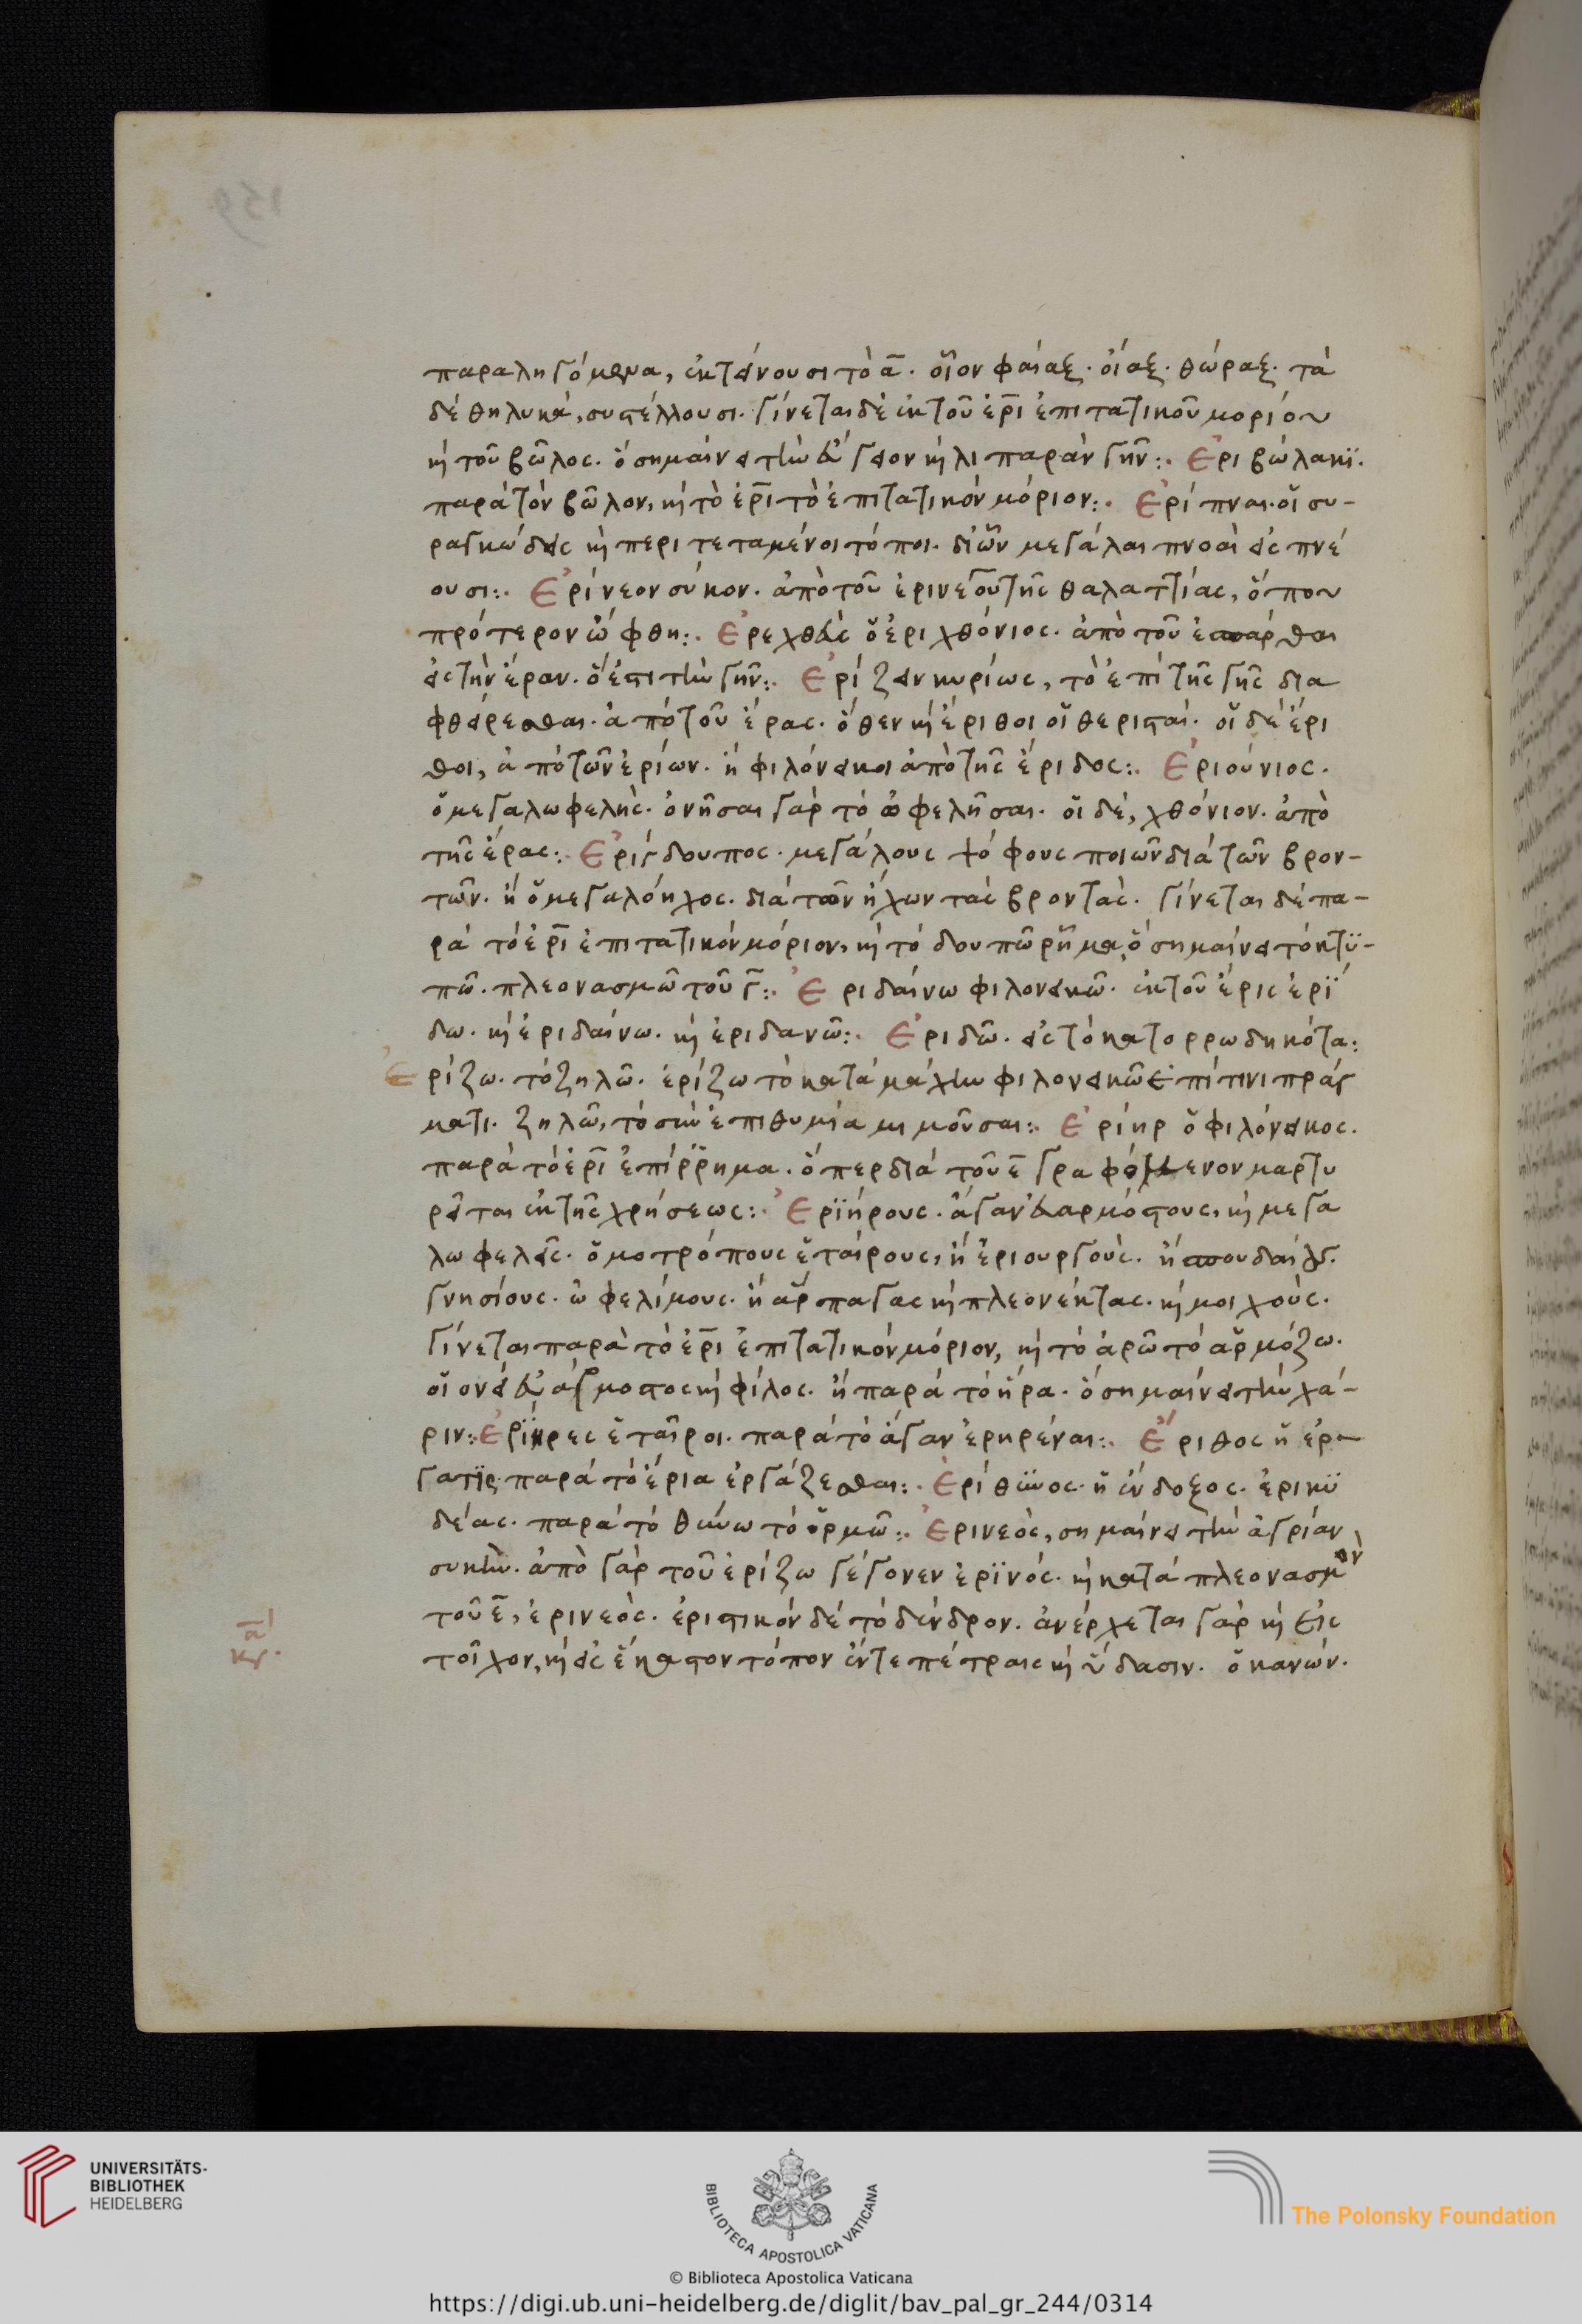 παραληγόμενα, ἐκτείνουσι τὸ α̅. οἷον φαίαξ. οἴαξ. θώραξ. τὰ
δέ θηλυκά, συστέλλουσι. γίνεται δὲ ἐκ τοῦ ἐρι̅ ἐπιτατικοῦ μορίου
καὶ τοῦ βῶλος. ὃ σημαίνει τὴν εὔγειον καὶ λιπαρὰν γῆν:. Ἐριβώλακϊ.
παρὰ τὸν βῶλον, καὶ τὸ ἐρι̅ τὸ ἐπιτατικόν μόριον:. Ἐρίπναι. οἱ συ-
ραγκώδεις καὶ περιτεταμένοι τόποι. δι' ὧν μεγάλαι πνοαὶ εἰσπνέ
ουσι:. Ἐρίνεον σύκον. ἀπὸ τοῦ ἐρινεοῦ τῆς θαλαττίας, ὅπου
πρότερον ὤφθη:. Ἐρεχθεὺς ὁ ἐριχθόνιος. ἀπὸ τοῦ ἐσπάρθαι
εἰς τὴν ἔραν. ὅ ἐστι τὴν γῆν:. Ἐρίζειν κυρίως, τὸ ἐπὶ τῆς γῆς δια
φθείρεσθαι. ἀπὸ τοῦ ἔρας. ὅθεν καὶ ἔριθοι οἱ θερισταί. οἱ δὲ ἔρι
θοι, ἀπὸ τῶν ἐρίων. ἢ φιλόνεικοι ἀπὸ τῆς ἔριδος:. Ἐριούνιος.
ὁ μεγαλωφελὴς. ὀνῆσαι γὰρ τὸ ὠφελῆσαι. οἱ δέ, χθόνιον. ἀπὸ
τῆς ἔρας:. Ἐρίγδουπος. μεγάλους ψόφους ποιῶν διὰ τῶν βρον-
τῶν. ἢ ὁ μεγαλόηχος. διά τῶν ἤχων τὰς βροντὰς. γίνεται δέ πα-
ρά τὸ ἐρι̅ ἐπιτατικόν μόριον, καὶ τὸ δουπῶ ῥῆμα, ὃ σημαίνει τὸ κτϋ-
πῶ. πλεονασμῶ τοῦ γ̅:. Ἐριδαίνω φιλονεικῶ. ἐκ τοῦ ἔρις ἐρί
δω. καὶ ἐριδαίνω. καὶ ἐριδανῶ:. Ἐριδῶ. εἰς τὸ κατορρωδηκότα:
Ἐρίζω. τὸ ζηλῶ. ἐρίζω τὸ κατά μάχην φιλονεικῶ ἐπί τινι πράγ
ματι. ζηλῶ, τὸ σὺν ἐπιθυμία μιμοῦσαι:. Ἐρίηρ ὁ φιλόνεικος.
παρά τὸ ἐρι̅ ἐπίρρημα. ὅπερ διά τοῦ ε̅ γραφόμενον μαρτυ
ρεῖται ἐκ τῆς χρήσεως:. Ἐρϊήρους. ἄγαν εὐαρμόστους, καὶ μεγα
λωφελεῖς. ὁμοτρόπους ἑταίρους, ἢ ἐριουργοὺς. ἢ σπουδαίους.
γνησίους. ὠφελίμους. ἢ ἅρπαγας καὶ πλεονέκτας. καὶ μοιχοὺς.
γίνεται παρὰ τὸ ἐρι̅ ἐπιτατικόν μόριον, καὶ τὸ ἀρῶ τὸ ἁρμόζω.
οἱονεί εὐάρμοστος καὶ φίλος. ἢ παρά τὸ ἦρα. ὃ σημαίνει τὴν χά-
ριν:. Ἐρίηρες ἑταῖροι. παρὰ τὸ ἄγαν ἐρηρέναι:. Ἔριθος ἡ ἐρ-
γατϊς παρά τὸ ἔρια ἐργάζεσθαι:. Ἐρίθϋνος. ἡ ἔνδοξος. ἐρικϋ
δέας. παρὰ τὸ θύνω τὸ ὁρμῶ:. Ἐρινεὸς, σημαίνει τὴν ἀγρίαν
συκῆν. ἀπὸ γὰρ τοῦ ἐρίζω γέγονεν ἐρϊνός. καὶ κατά πλεονασμὸν
τοῦ ε̅, ἐρινεὸς. ἐριστικόν δέ τὸ δένδρον. ἀνέρχεται γὰρ καὶ εἰς
τοῖχον, καὶ εἰς ἕκαστον τόπον ἔν τε πέτραις καὶ ὕδασιν. ὁ κανών.
UNIVERSITÄTS-
BIBLIOTHEK
HEIDELBERG
BIBLIOTECA APOSTOLICA VATICANA
The Polonsky Foundation
© Biblioteca Apostolica Vaticana
https://digi.ub.uni-heidelberg.de/diglit/bav_pal_gr_244/0314